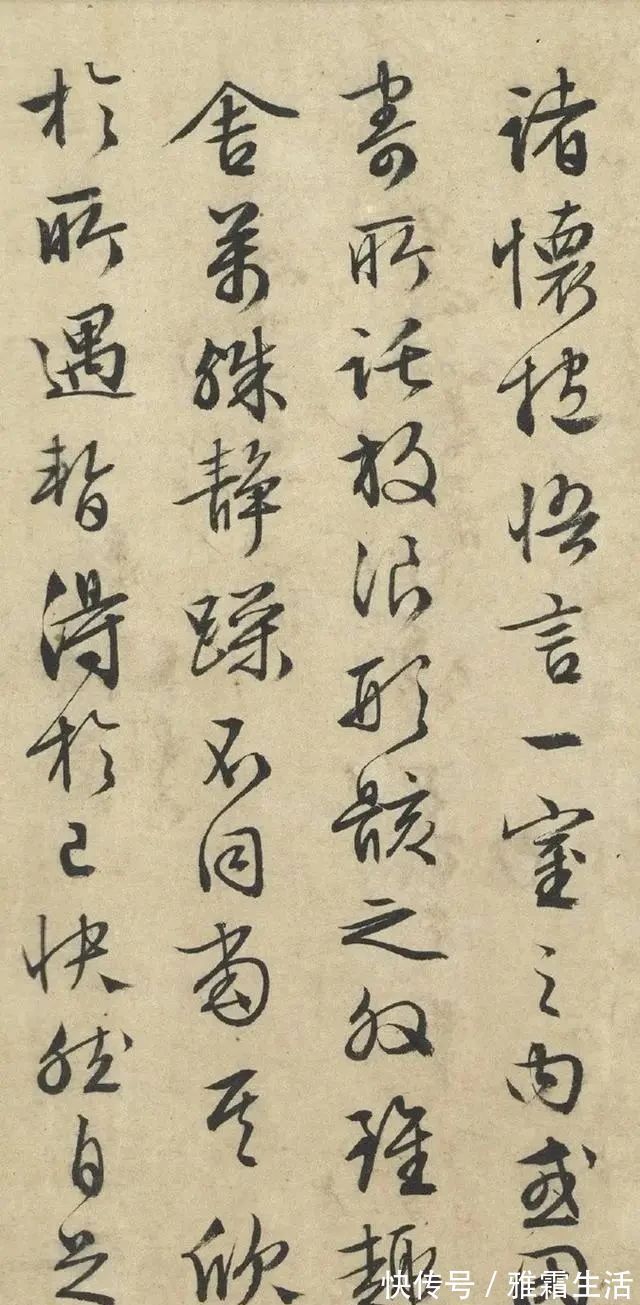 諸懷抱悟言一室之内或因
寄所託放浪形骸之外雖趣
舍萬殊静躁不同當其欣
於所遇暫得於己快然自足
快传号 / 雅霜生活